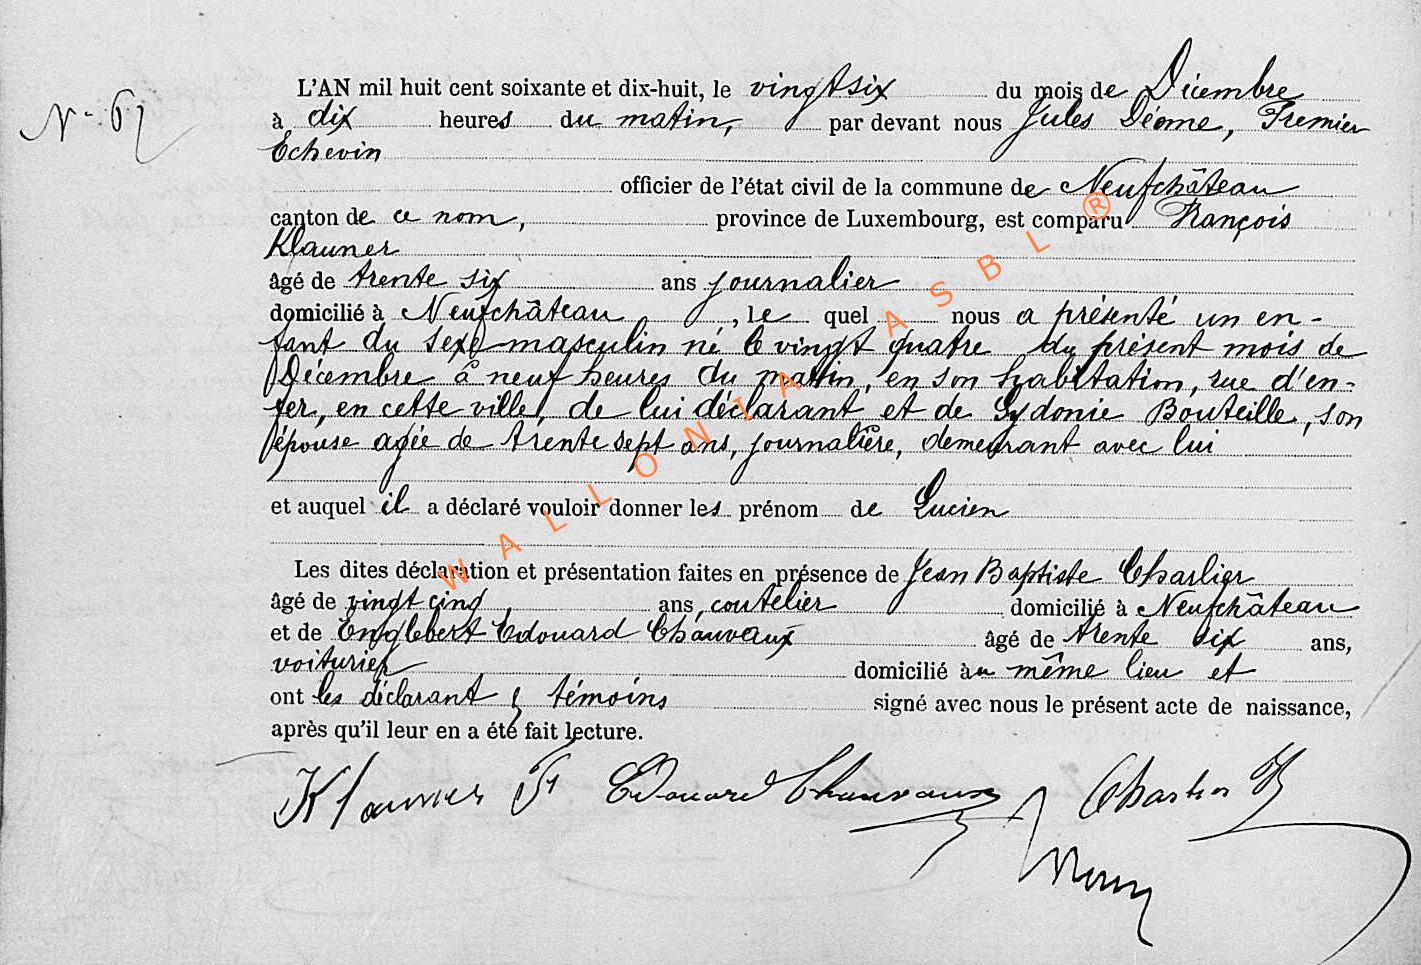 N° 67
L'AN mil huit cent soixante et dix-huit, le vingt six du mois de Décembre
à dix heures du matin, par devant nous Jules Déome, Premier
Echevin
officier de l'état civil de la commune de Neufchâteau
canton de ce nom, province de Luxembourg, est comparu François
Klauner
âgé de trente six ans journalier
domicilié à Neufchâteau, le quel nous a présenté un en-
fant du sexe masculin né le vingt quatre du présent mois de
Décembre à neuf heures du matin, en son habitation, rue d'en-
fer, en cette ville, de lui déclarant et de Sydonie Bouteille, son
épouse agée de trente sept ans, journalière, demeurant avec lui
et auquel il a déclaré vouloir donner les prénom de Lucien
Les dites déclaration et présentation faites en présence de Jean Baptiste Charlier
âgé de vingt cinq, ans, coutelier domicilié à Neufchâteau
et de Englebert Edouard Chauvaux âgé de trente six ans,
voiturier domicilié au même lieu et
ont les déclarant & témoins signé avec nous le présent acte de naissance,
après qu'il leur en a été fait lecture.
Klauner F Edouard Chauvaux Charlier J
WALLONIA ASBL ®